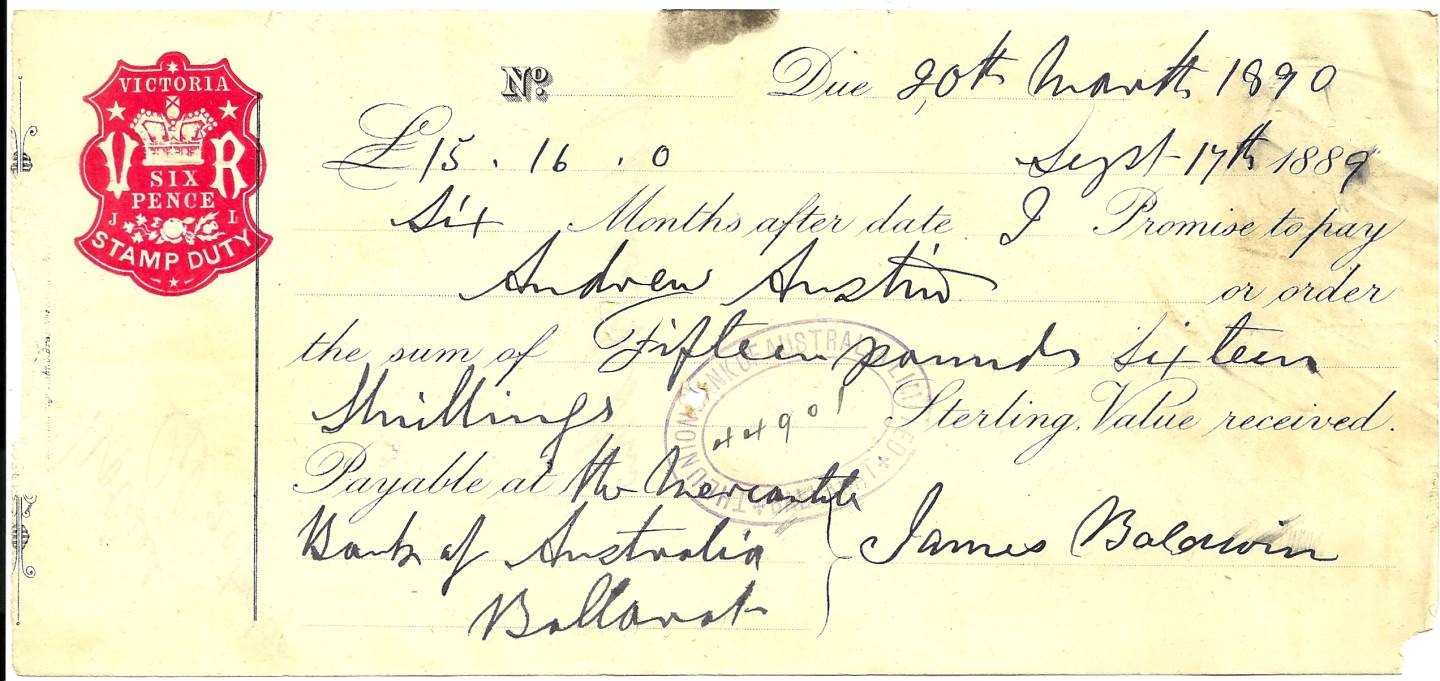 VICTORIA
V R
SIX
PENCE
J L
STAMP DUTY
No. Due 20th March 1890
£15.16.0 Sept 17th 1889
Six Months after date I Promise to pay
Andrew Austin or order
the sum of Fifteen pounds Sixteen
Shillings Sterling, Value received.
Payable at the Mercantile
Bank of Australia
Ballarat
James Baldwin
THE UNION BANK OF AUSTRALIA LIMITED